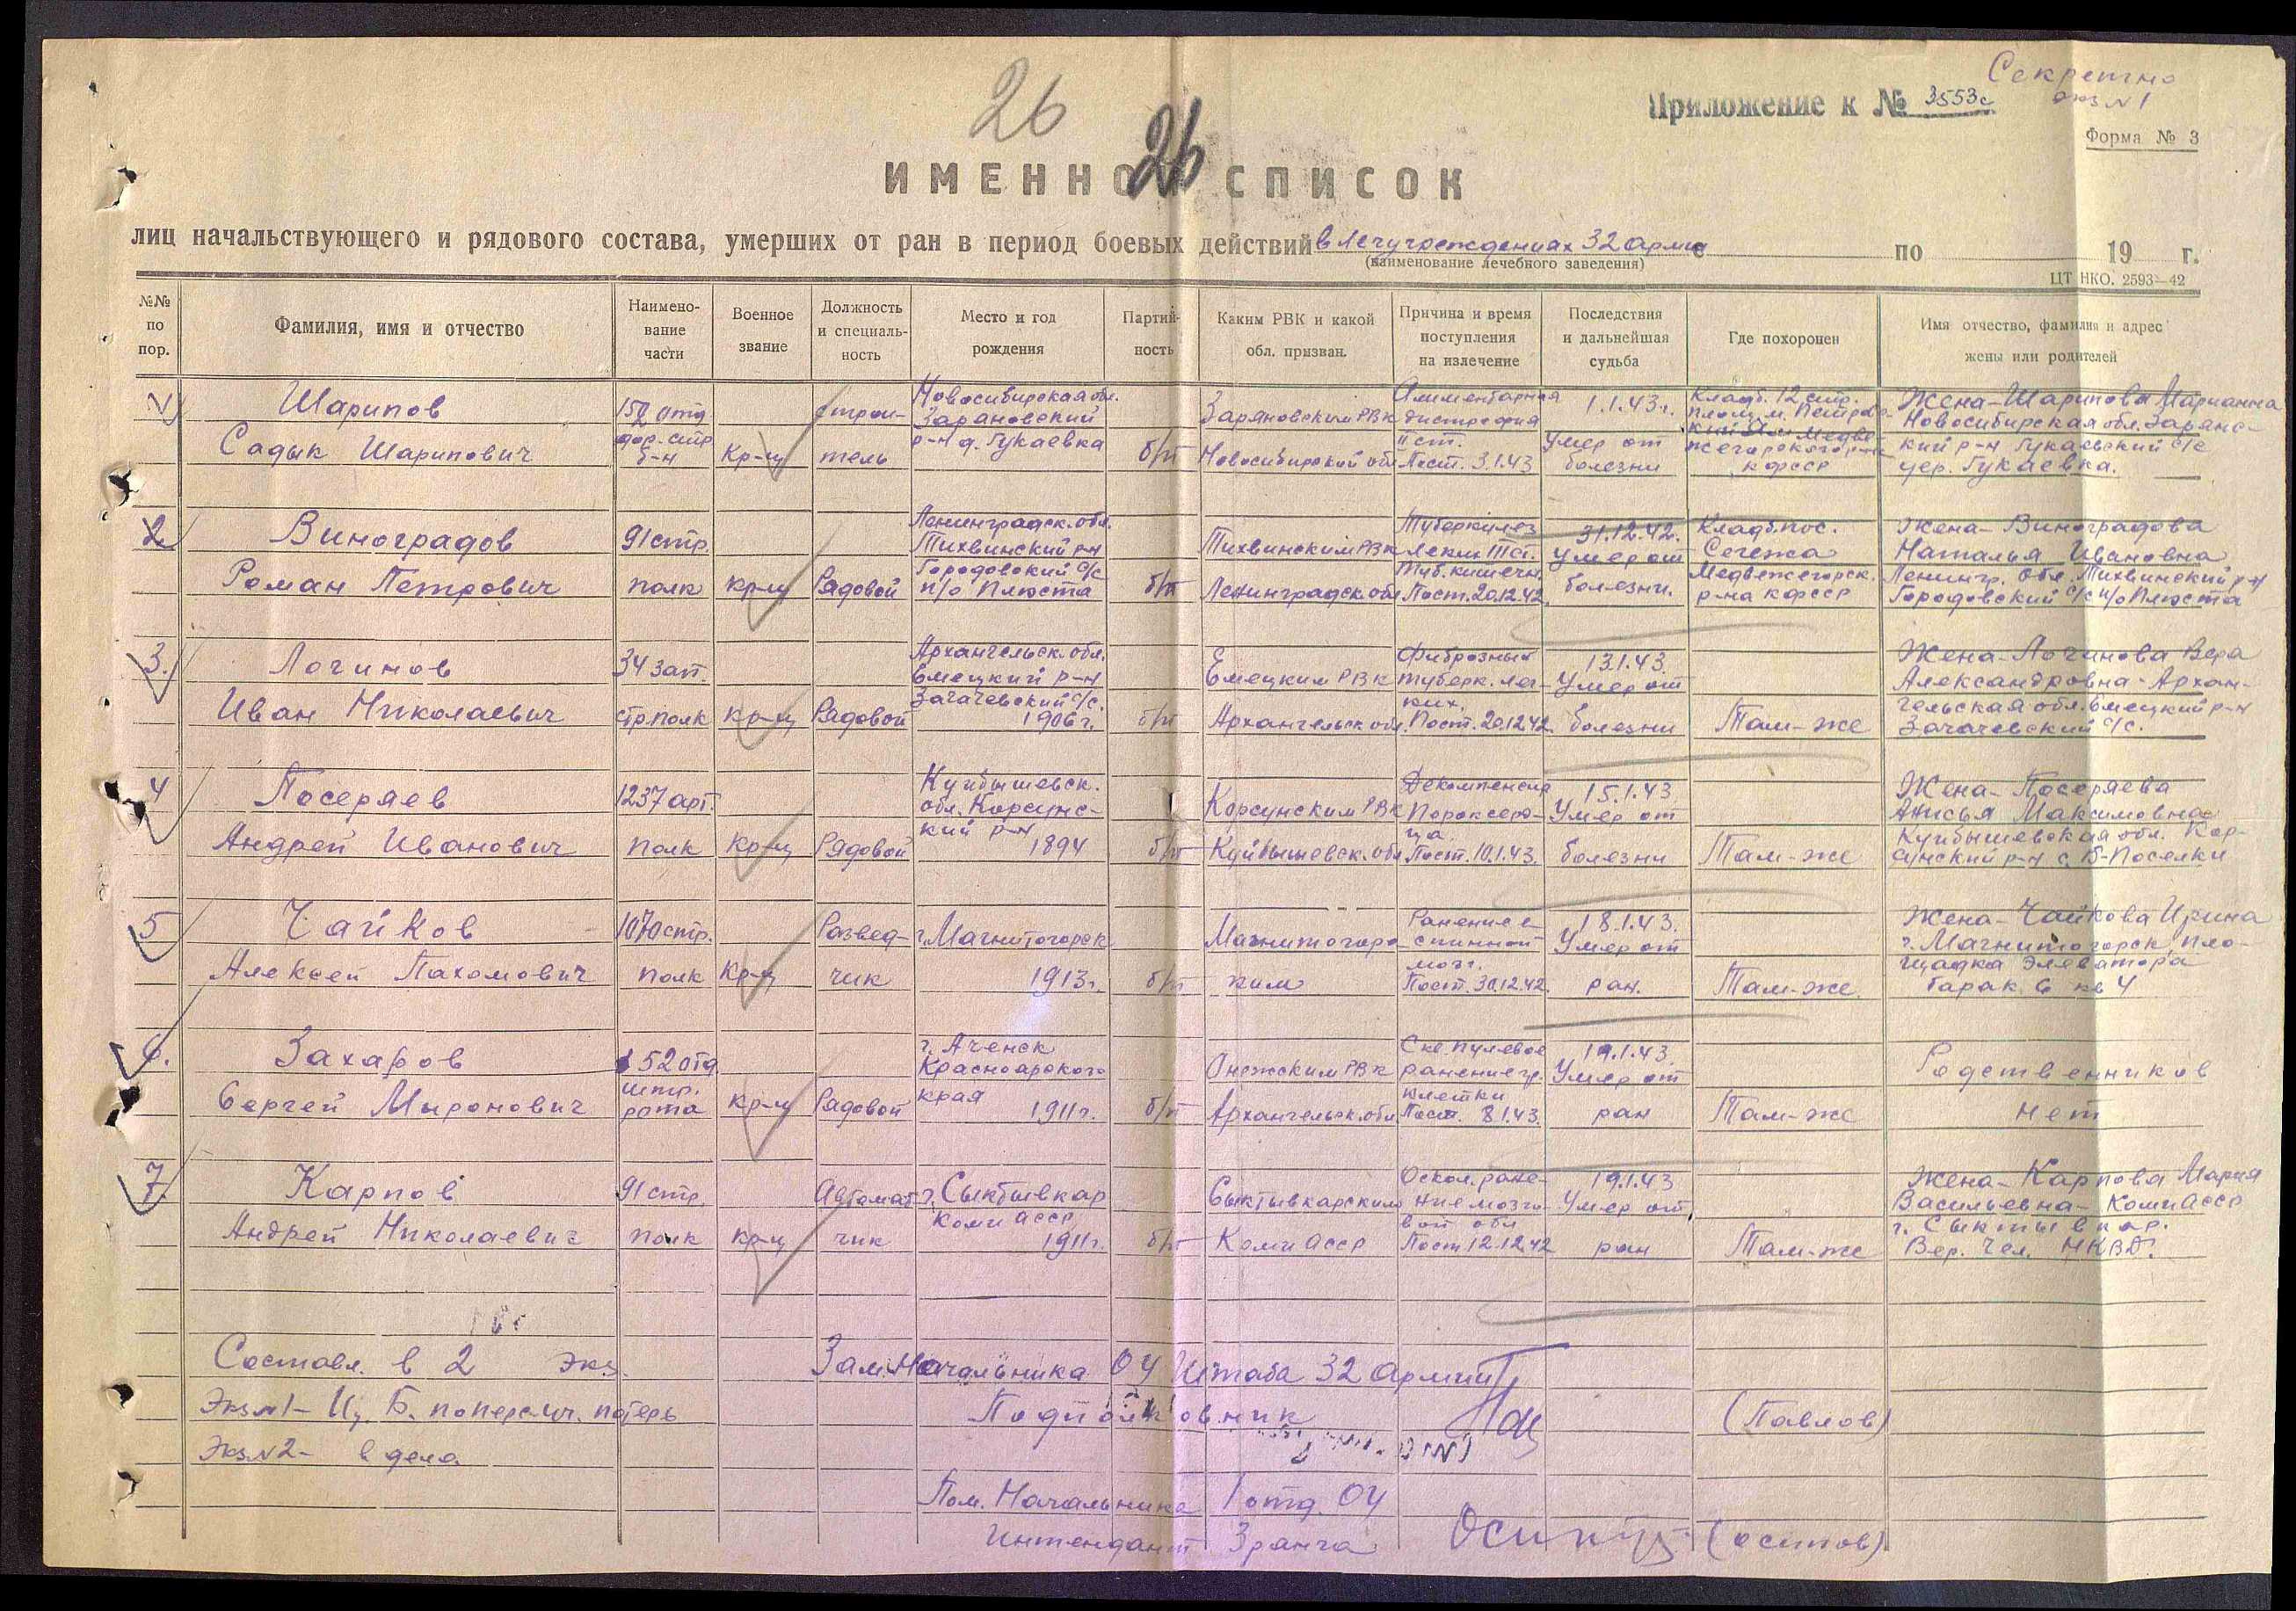 Секретно
экз N 1
Приложение к № 3553с
Форма № 3
26
26
ИМЕННОЙ СПИСОК
лиц начальствующего и рядового состава, умерших от ран в период боевых действий в Лечучреждениях 32 армии с по 19 г.
(наименование лечебного заведения)
ЦТ НКО. 2593—42
№№ по пор.
Фамилия, имя и отчество
Наимено- вание части
Военное звание
Должность и специаль- ность
Место и год рождения
Партий- ность
Каким РВК и какой обл. призван.
Причина и время поступления на излечение
Последствия и дальнейшая судьба
Где похоронен
Имя отчество, фамилия и адрес жены или родителей
1
Шарипов
Садык Шарипович
152 отд
дор. стр
б-н
Кр-ц
строи-
тель
Новосибирская обл.
Зарановский
р-н д. Гукаевка
б/п
Заряновским РВК
Новосибирской обл
Алиментарная
дистрофия
II ст.
Пост. 3.1.43
1.1.43г.
Умер от
болезни
Кладб. 12 стр.
площ. м. Петров-
кий Ям Медве-
жегорского р-на
кфсср
Жена-Шарипова Марианна
Новосибирская обл. Заряно-
кий р-н Гукаевский с/с
дер. Гукаевка.
2
Виноградов
Роман Петрович
91 стр.
полк
кр-ц
Рядовой
Ленинградск. обл.
Тихвинский р-н
Городовский с/с
п/о Плюста
б/п
Тихвинским РВК
Ленинградск. обл
Туберкулез
легких III ст.
Туб. кишечн.
Пост. 20.12.42.
31.12.42.
Умер от
болезни.
Кладб. пос.
Сегежа
Медвежегорск.
р-на кфсср
Жена-Виноградова
Наталья Ивановна
Ленингр. обл. Тихвинский р-н
Городовский с/с п/о Плюста
3.
Логинов
Иван Николаевич
34 зап.
стр. полк
кр-ц
Рядовой
Архангельск. обл.
Емецкий р-н
Зачачевский с/с.
1906 г.
б/п
Емецким РВК
Архангельск обл.
Фиброзный
туберк. лег-
ких.
Пост. 20.12.42.
13.1.43
Умер от
болезни
Там-же
Жена-Логинова Вера
Александровна-Архан-
гельская обл. Емецкий р-н
Зачачевский с/с.
4
Посеряев
Андрей Иванович
1237 арт.
полк
Кр-ц
Рядовой
Куйбышевск.
обл. Корсунс-
кий р-н
1894
б/п
Корсунским РВК
Куйбышевск. обл
Декомпенсир
Порок серд-
ца.
Пост. 10.1.43.
15.1.43
Умер от
болезни
Там-же
Жена-Посеряева
Анисья Максимовна
Куйбышевская обл. Кор-
сунский р-н с. Б-Поселки
5
Чайков
Алексей Пахомович
1070 стр.
полк
Кр-ц
Развед-
чик
г. Магнитогорск
1913г.
б/п
Магнитогорс-
ким
Ранение
спинной
мозг.
Пост. 30.12.42.
18.1.43.
Умер от
ран.
Там-же.
Жена-Чайкова Ирина
г. Магнитогорск, пло-
щадка Элеватора
барак 6 кв 4
6.
Захаров
Сергей Миронович
152 отд
штр.
рота
кр-ц
Рядовой
г. Аченск
Красноарского
края
1911г.
б/п
Онежским РВК
Архангельск. обл.
Скв. пулевое
ранение гр.
клетки
Пост. 8.1.43.
19.1.43
Умер от
ран
Там-же
Родственников
нет
7.
Карпов
Андрей Николаевич
91 стр.
полк
кр-ц
Автомат
чик
г. Сыктывкар
Коми АССР
1911г.
б/п
Сыктывкарским
Коми АССР
Оскол. ране-
ние мозго-
вой обл
Пост 12.12.42
19.1.43
Умер от
ран
Там-же
Жена-Карпова Мария
Васильевна-Коми АССР
г. Сыктывкар.
Вер. Чел. НКВД.
Составл. в 2 экз.
Экз N 1- Ц. Б. по персуч. потерь
Экз N 2- в дело
Зам. Начальника ОУ Штаба 32 армии
Подполковник
(Павлов)
Пом. Начальника 1 отд. ОУ
Интендант 3 ранга
(осипов)